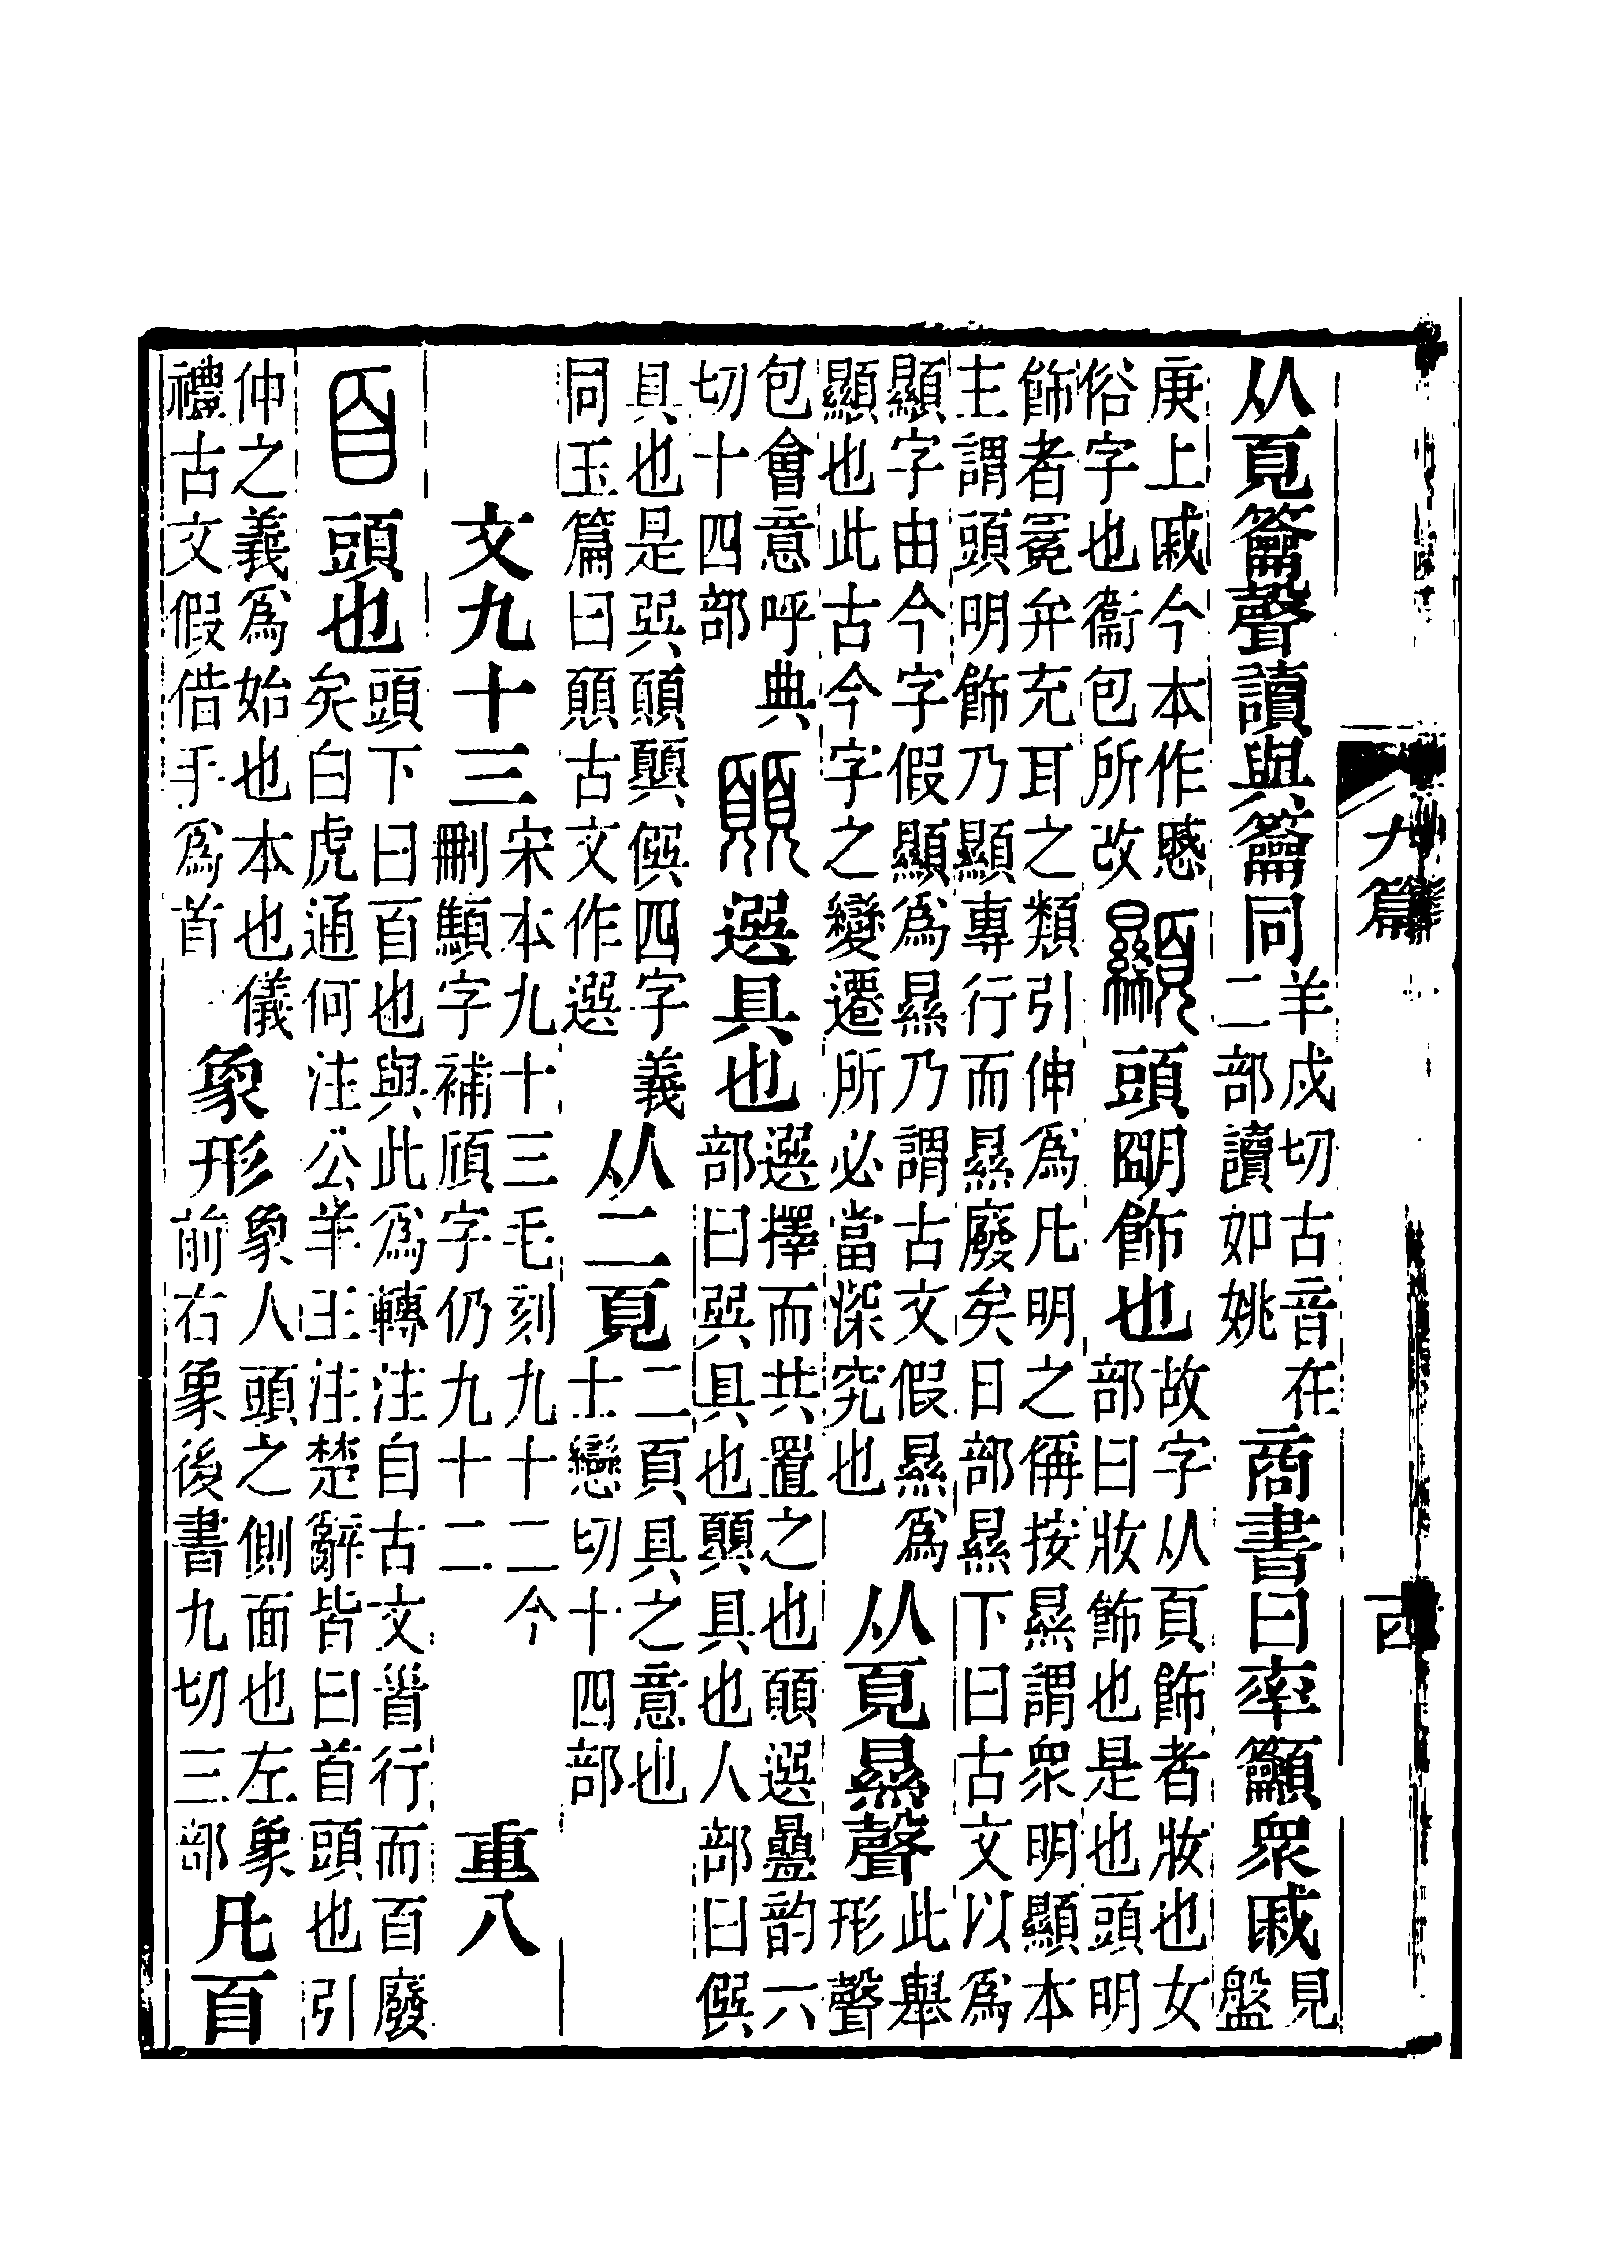 九篇
古
从頁籥聲讀與籥同
羊戍切古音在
二部讀如姚
商書曰率籲眾戚
見
盤
庚上戚今本作慼
俗字也衞包所改
顯
頭明飾也
故字从頁飾者妝也女
部曰妝飾也是也頭明
飾者冕弁充耳之類引伸爲凡明之稱按㬎謂眾明顯本
主謂頭明飾乃顯專行而㬎廢矣日部㬎下曰古文以爲
顯字由今字假顯爲㬎乃謂古文假㬎爲
顯也此古今字之變遷所必當深究也
从頁㬎聲
此舉
形聲
包會意呼典
切十四部
𩕖
選具也
選擇而共置之也𩕖選疊韵六
部曰巺具也顨具也人部曰僎
具也是巺𩕖顨僎四字義
同玉篇曰𩕖古文作選
从二頁
二頁具之意也
士戀切十四部
文九十三
宋本九十三毛刻九十二今
刪䫙字補頎字仍九十二
重八
𦣻
頭也
頭下曰𦣻也與此爲轉注自古文𩠐行而𦣻廢
矣白虎通何注公羊王注楚辭皆曰首頭也引
伸之義爲始也本也儀
禮古文假借手爲首
象形
象人頭之側面也左象
前右象後書九切三部
凡𦣻